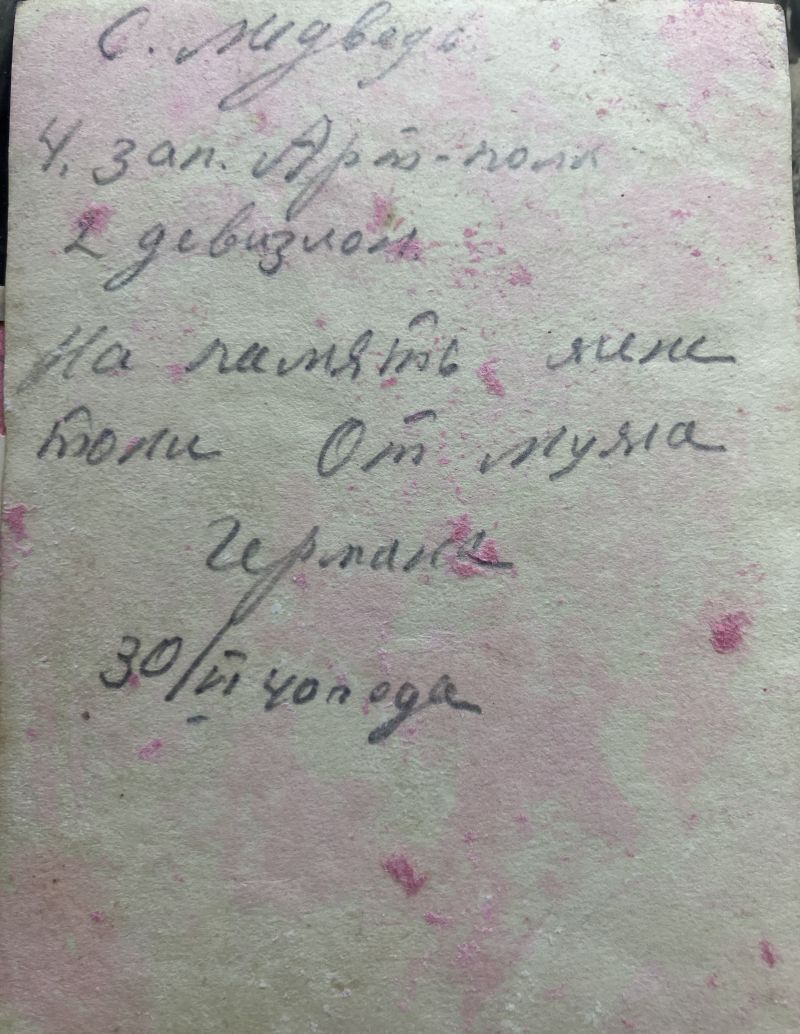 С. Медведь
4. зап. Арт-полк
2 девизион.
На память жене
тони От мужа
Германа
30/II 40 года